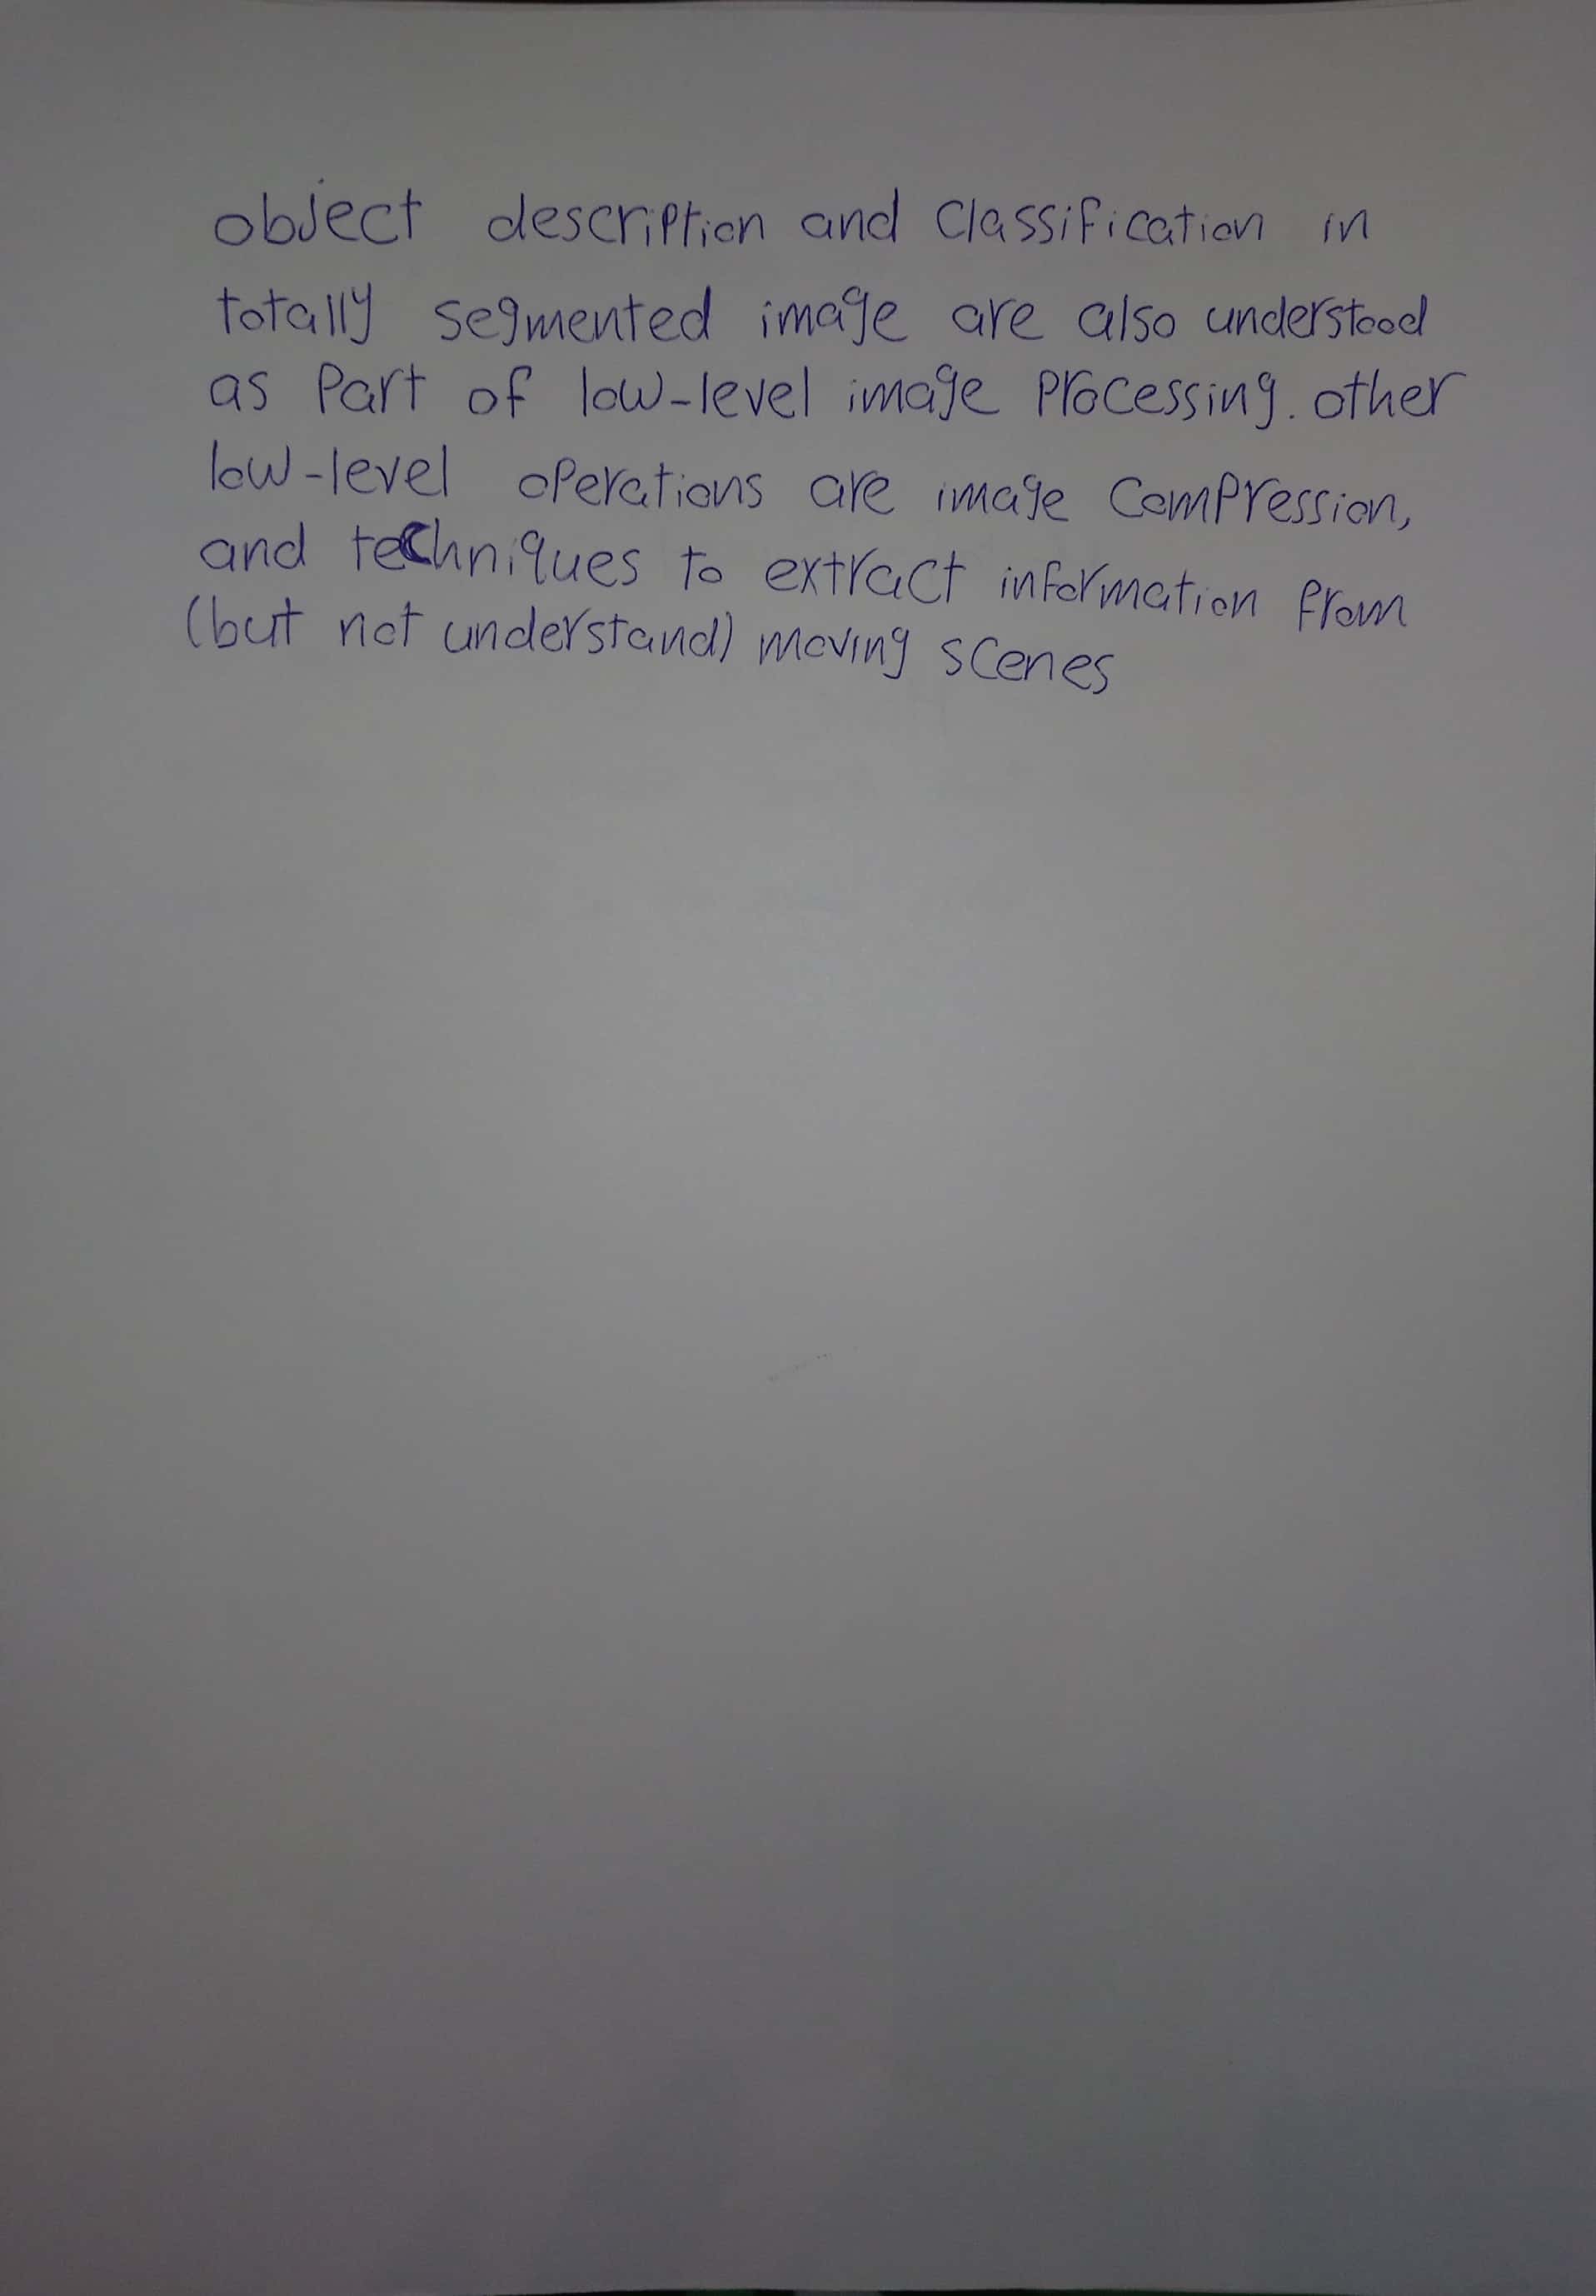 object description and classification in
totally segmented image are also understood
as Part of low-level image Processing. other
low-level operations are image compression,
and techniques to extract information from
(but not understand) moving scenes